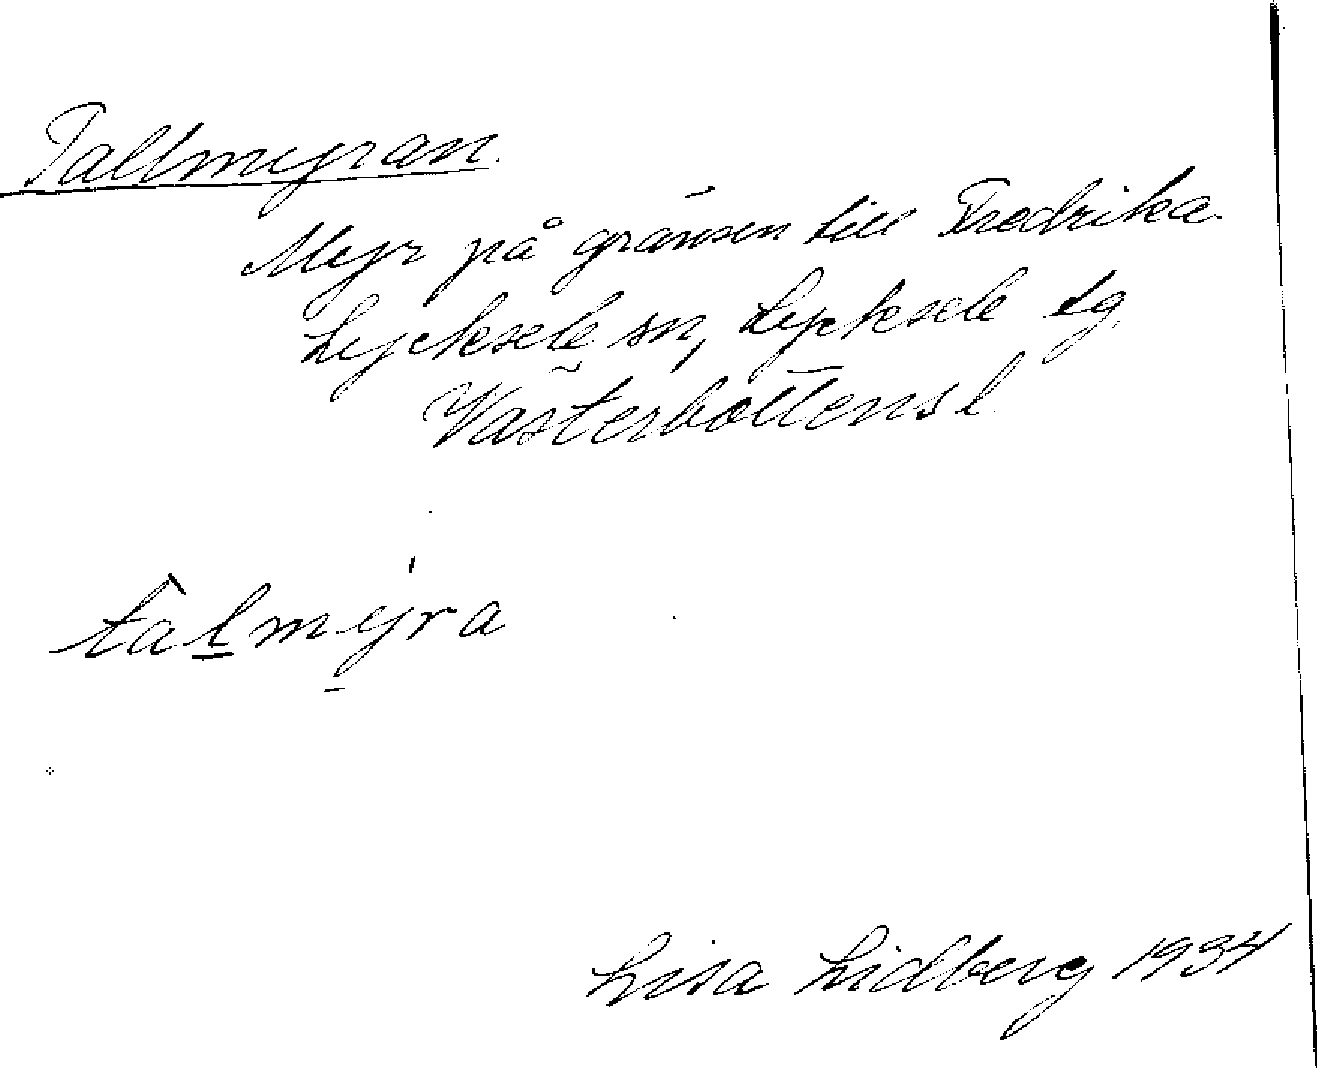 Tallmyran.
Myr på gränsen till Fredrika.
Lycksele sn, Lycksele tg.
Västerbottens l.
tàlmýra
Lisa Lidberg 1934